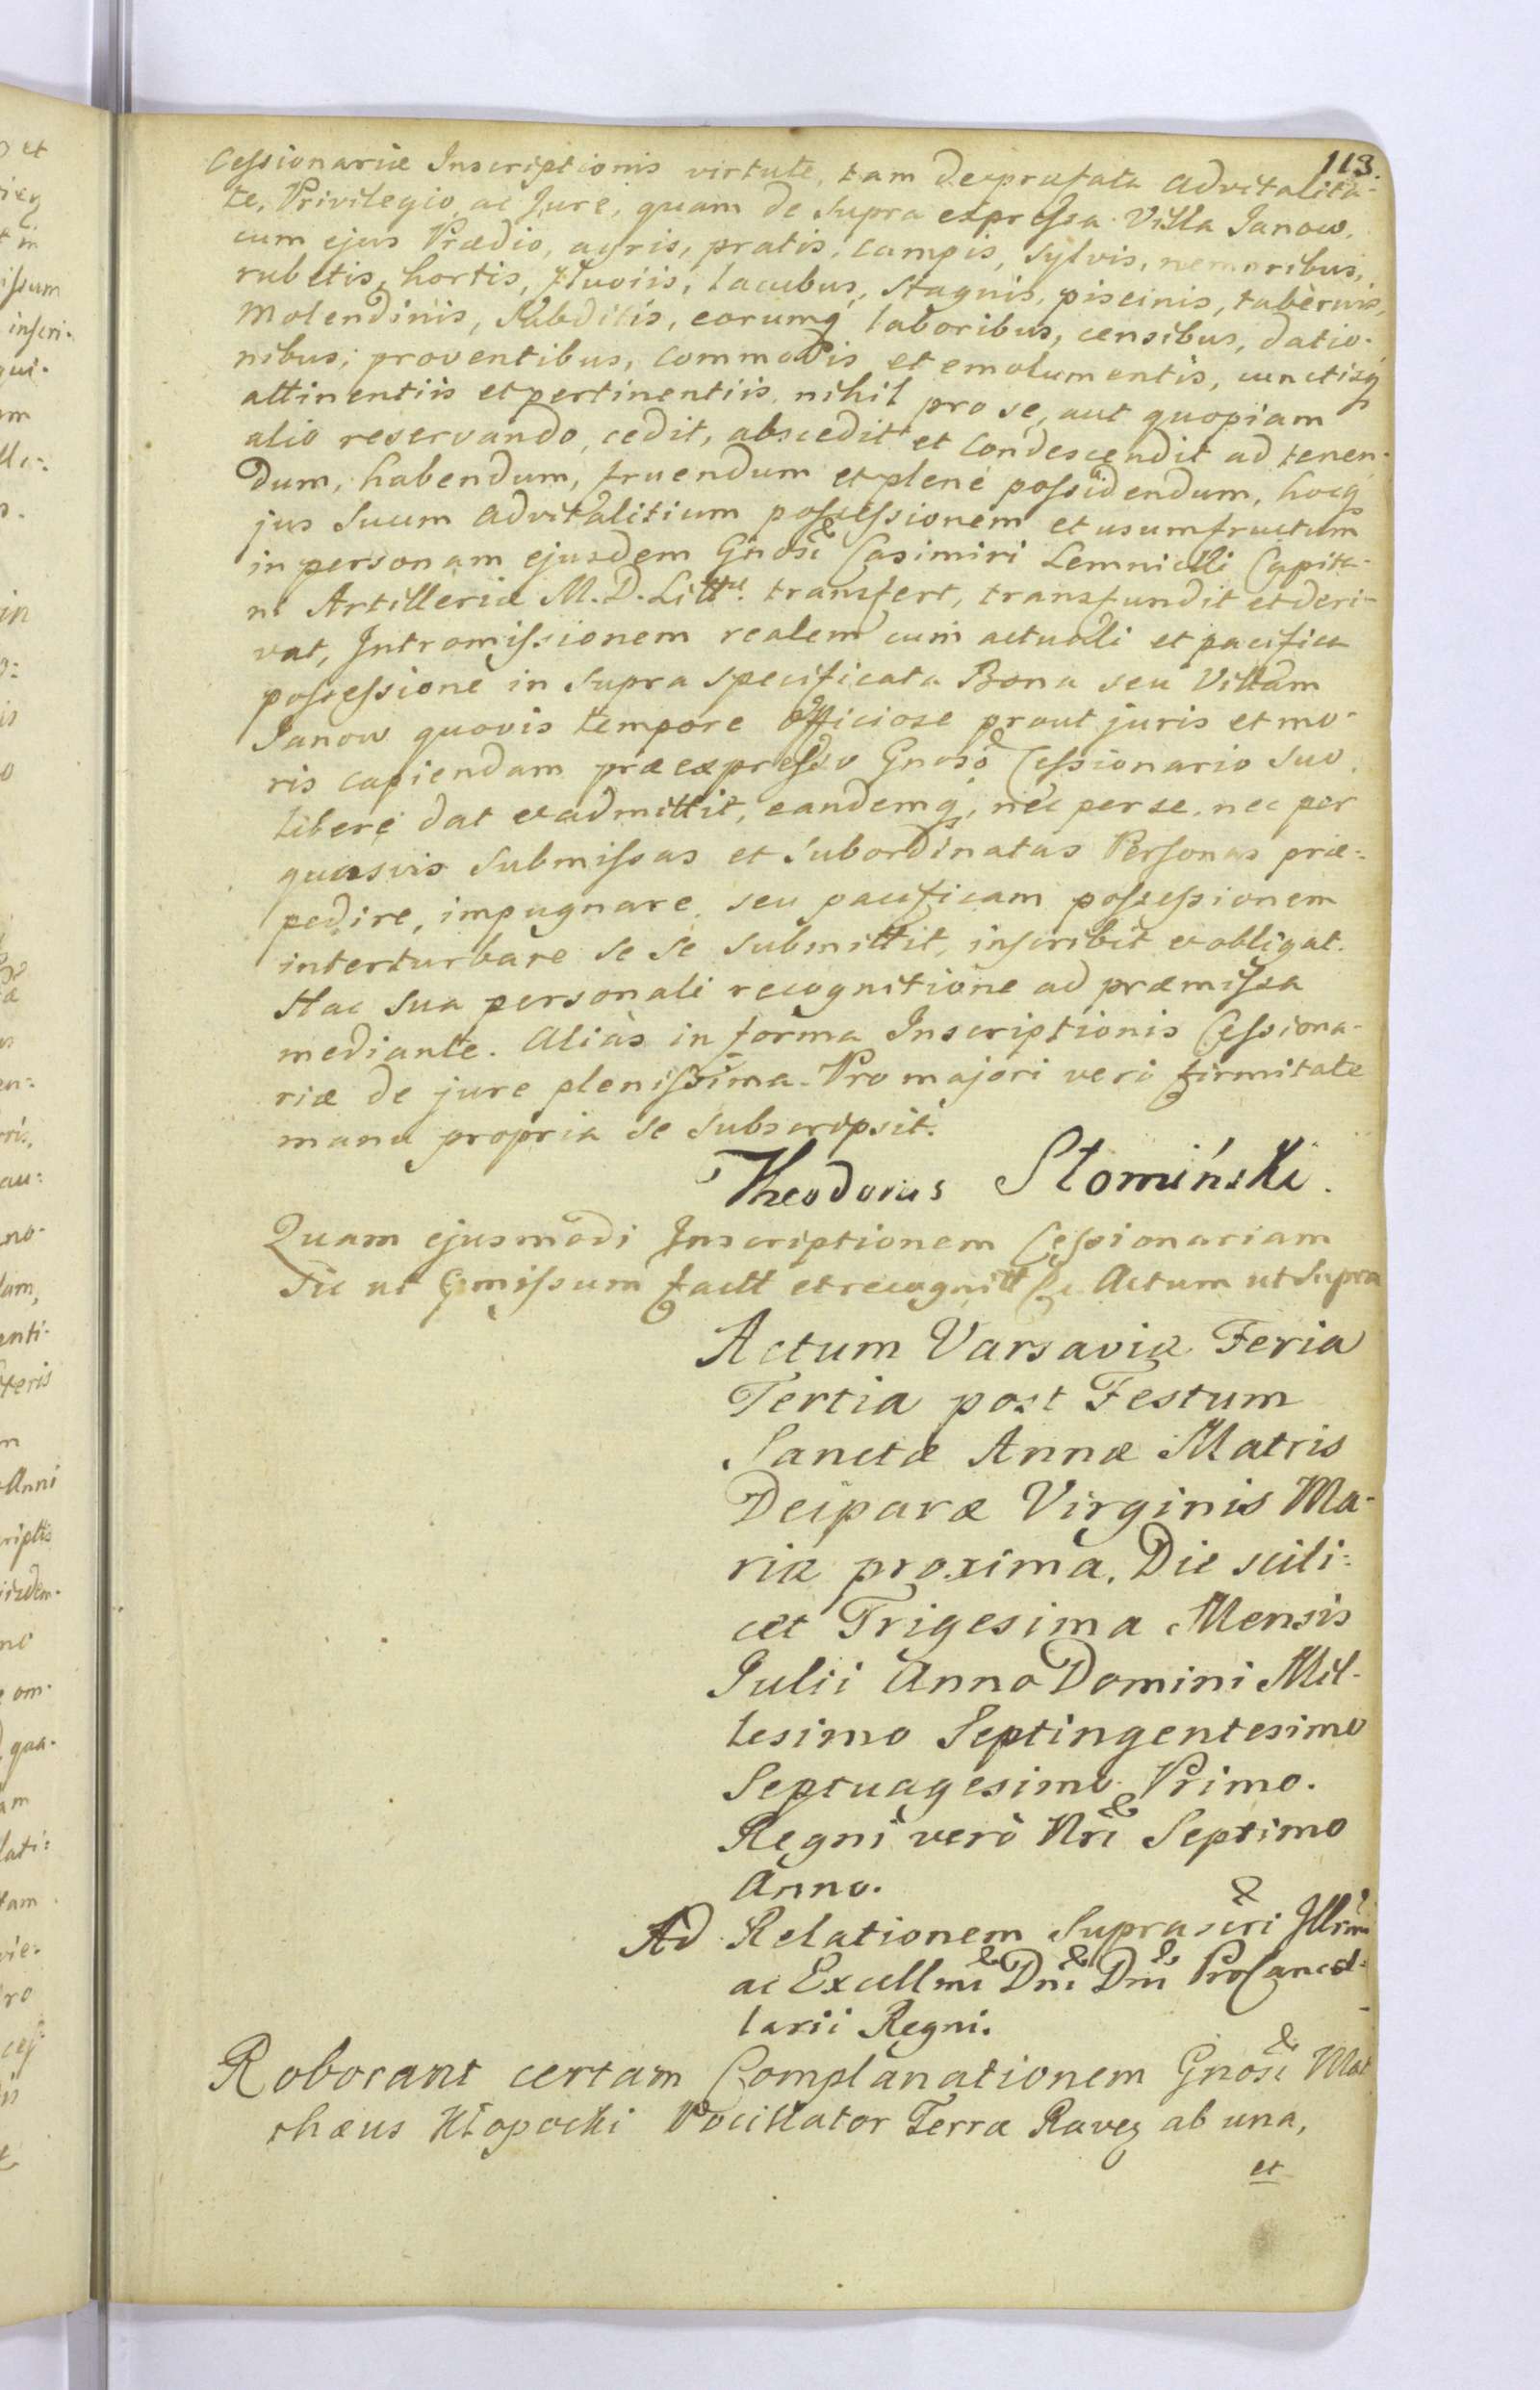 113.
Cessionariæ Inscriptionis virtute, tam de præfata advitalita-
te, Privilegio, ac Jure, quam de supra expressa Villa Janow,
cum ejus Prædio, agris, pratis, campis, sylvis, nemoribus,
rubetis, hortis, fluviis, lacubus, stagnis, piscinis, tabernis,
Molendinis, Subditis, eorumq laboribus, censibus, datio-
nibus, proventibus, commodis et emolumentis, cunctisq
attinentiis et pertinentiis nihil pro se, aut quopiam
alio reservando, cedit, abscedit et condescendit ad tenen-
dum, habendum, fruendum et plené possidendum, hocq
jus suum advitalitium possessionem et usumfructum
in personam ejusdem Gnosi Casimiri Lemnicki Capita-
ni Artilleriæ M. D. Littæ. transfert, transfundit et deri-
vat, Intromissionem realem cum actuali et pacifica
possessione in supra specificata Bona seu Villam
Janow quovis tempore officiose prout juris et mo-
ris capiendam præexpresso Gnoso Cessionario suo
libere dat et admittit, eandemq, nec per se, nec per
quasvis submissas et subordinatas Personas præ-
pedire, impugnare, seu pacificam possessionem
interturbare se se submittit, inscribit et obligat.
Hac sua personali recognitione ad præmissa
mediante. Aliàs in forma Inscriptionis Cessiona-
riæ de jure plenissima. Pro majori verò firmitate
manu propria se subscripsit.
Theodorus Słomiński.
Quam ejusmodi Inscriptionem Cessionariam
sic ut pmissum factt et recognitt Actum ut supra
Actum Varsaviæ Feria
Tertia post Festum
Sanctæ Annæ Matris
Deiparæ Virginis Ma-
riæ proxima. Die scili-
cet Trigesima Mensis
Julii Anno Domini Mil-
lesimo Septingentesimo
Septuagesimo Primo.
Regni verò Nri Septimo
Anno.
Ad Relationem Suprascri Illrmi
ac Excellmi Dni Dni ProCancel-
larii Regni.
Roborant certam Complanationem Gnosi Mat
thæus Kłopocki Pocillator Terræ Raveɳ ab una,
et